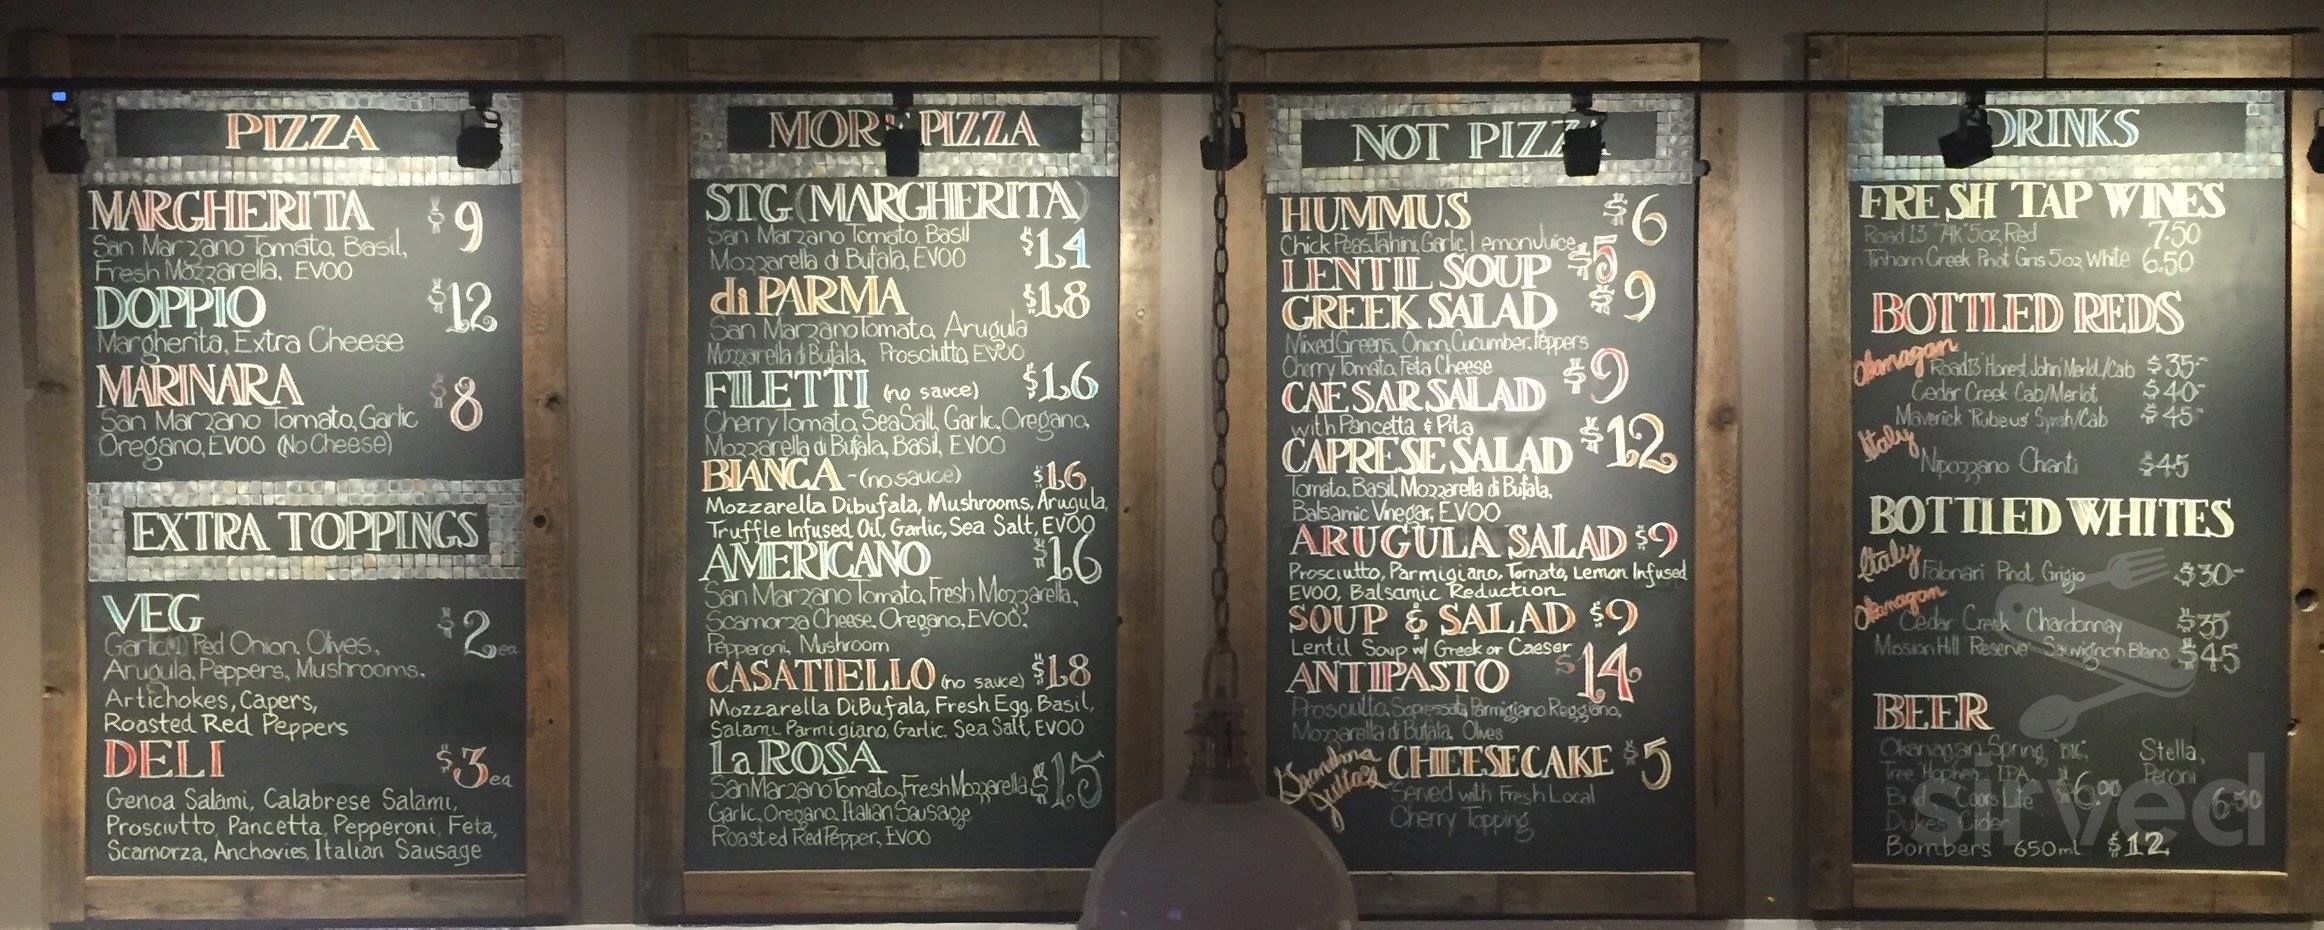 PIZZA
MARGHERITA $9
San Marzano Tomato, Basil,
Fresh Mozzarella, EVOO
DOPPIO $12
Margherita, Extra Cheese
MARINARA $8
San Marzano Tomato, Garlic
Oregano, EVOO (No Cheese)
EXTRA TOPPINGS
VEG $2 ea
Garlic, Red Onion, Olives,
Arugula, Peppers, Mushrooms,
Artichokes, Capers,
Roasted Red Peppers
DELI $3 ea
Genoa Salami, Calabrese Salami,
Prosciutto, Pancetta, Pepperoni, Feta,
Scamorza, Anchovies, Italian Sausage
MORE PIZZA
STG (MARGHERITA)
San Marzano Tomato, Basil $14
Mozzarella di Bufala, EVOO
di PARMA $18
San Marzano Tomato, Arugula
Mozzarella di Bufala, Prosciutto, EVOO
FILETTI (no sauce) $16
Cherry Tomato, Sea Salt, Garlic, Oregano,
Mozzarella di Bufala, Basil, EVOO
BIANCA - (no sauce) $16
Mozzarella Dibufala, Mushrooms, Arugula,
Truffle Infused Oil, Garlic, Sea Salt, EVOO
AMERICANO $16
San Marzano Tomato, Fresh Mozzarella,
Scamorza Cheese, Oregano, EVOO,
Pepperoni, Mushroom
CASATIELLO (no sauce) $18
Mozzarella DiBufala, Fresh Egg, Basil,
Salami, Parmigiano, Garlic, Sea Salt, EVOO
La ROSA
San Marzano Tomato, Fresh Mozzarella $15
Garlic, Oregano, Italian Sausage
Roasted Red Pepper, EVOO
NOT PIZZA
HUMMUS $6
Chick Peas, Tahini, Garlic, Lemon Juice
LENTIL SOUP $5
GREEK SALAD $9
Mixed Greens, Onion, Cucumber, Peppers
Cherry Tomato, Feta Cheese
CAESAR SALAD $9
with Pancetta & Pita
CAPRESE SALAD $12
Tomato, Basil, Mozzarella di Bufala,
Balsamic Vinegar, EVOO
ARUGULA SALAD $9
Prosciutto, Parmigiano, Tomato, Lemon Infused
EVOO, Balsamic Reduction
SOUP & SALAD $9
Lentil Soup w/ Greek or Caeser
ANTIPASTO $14
Prosciutto, Sopressata, Parmigiano Reggiono,
Mozzarella di Bufala, Olives
Grandma Jutta's CHEESECAKE $5
Served with Fresh Local
Cherry Topping
DRINKS
FRESH TAP WINES
Road 13 "74K" 5oz Red 7.50
Tinhorn Creek Pinot Gris 5oz White 6.50
BOTTLED REDS
Okanagan Road 13 'Honest John' Merlot/Cab $35-
Cedar Creek Cab/Merlot $40-
Maverick 'Rubeus' Syrah/Cab $45-
Italy
Nipozzano Chanti $45
BOTTLED WHITES
Italy Folonari Pinot Grigio $30-
Okanagan
Cedar Creek Chardonnay $35
Mission Hill 'Reserve' Sauvignon Blanc $45
BEER
Okanagan Spring, Stella,
Tree 'Hophead' IPA Peroni
Bud, Coors Lite $6.00 6.50
Dukes Cider
Bombers 650ml $12
sirved